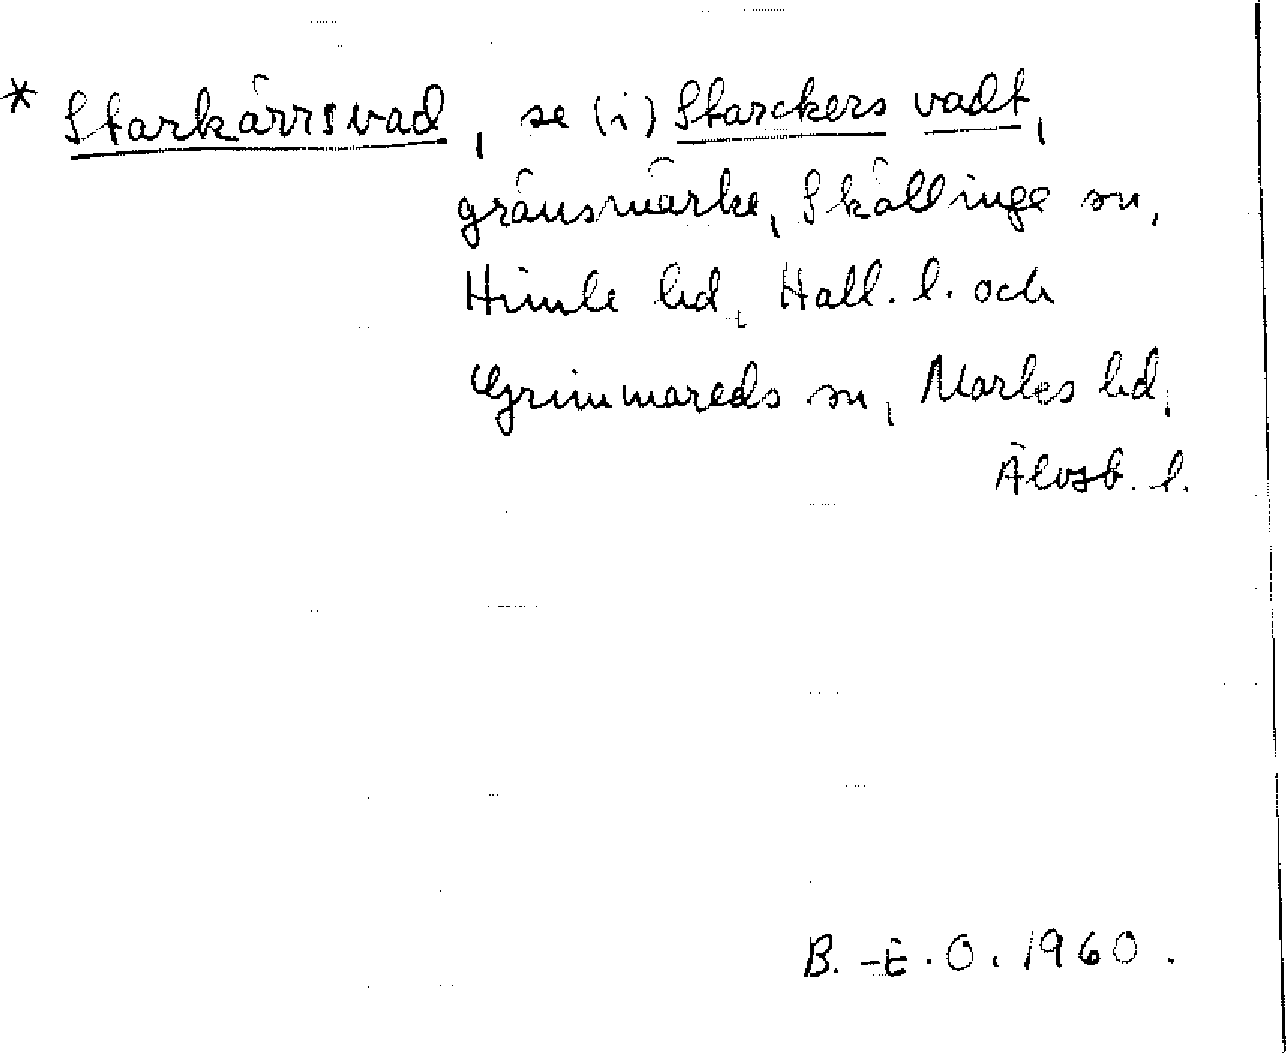 * Starkärrsvad, se (i) Starckers vadt,
gränsmärke, Skällinge sn,
Himle hd, Hall. l. och
Grimmareds sn, Marks hd,
Älvsb. l.
B.-E. O. 1960.